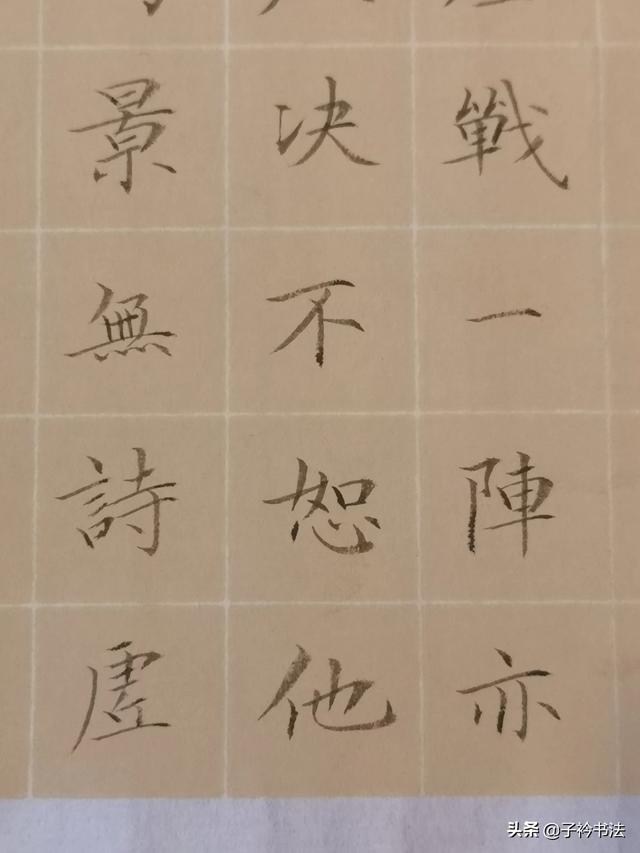 戰一陣亦
决不恕他
景無詩虛
头条 @子衿书法